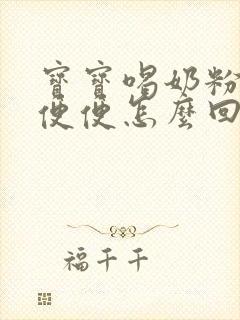 寶寶喝奶粉
便便怎麼回
福千千